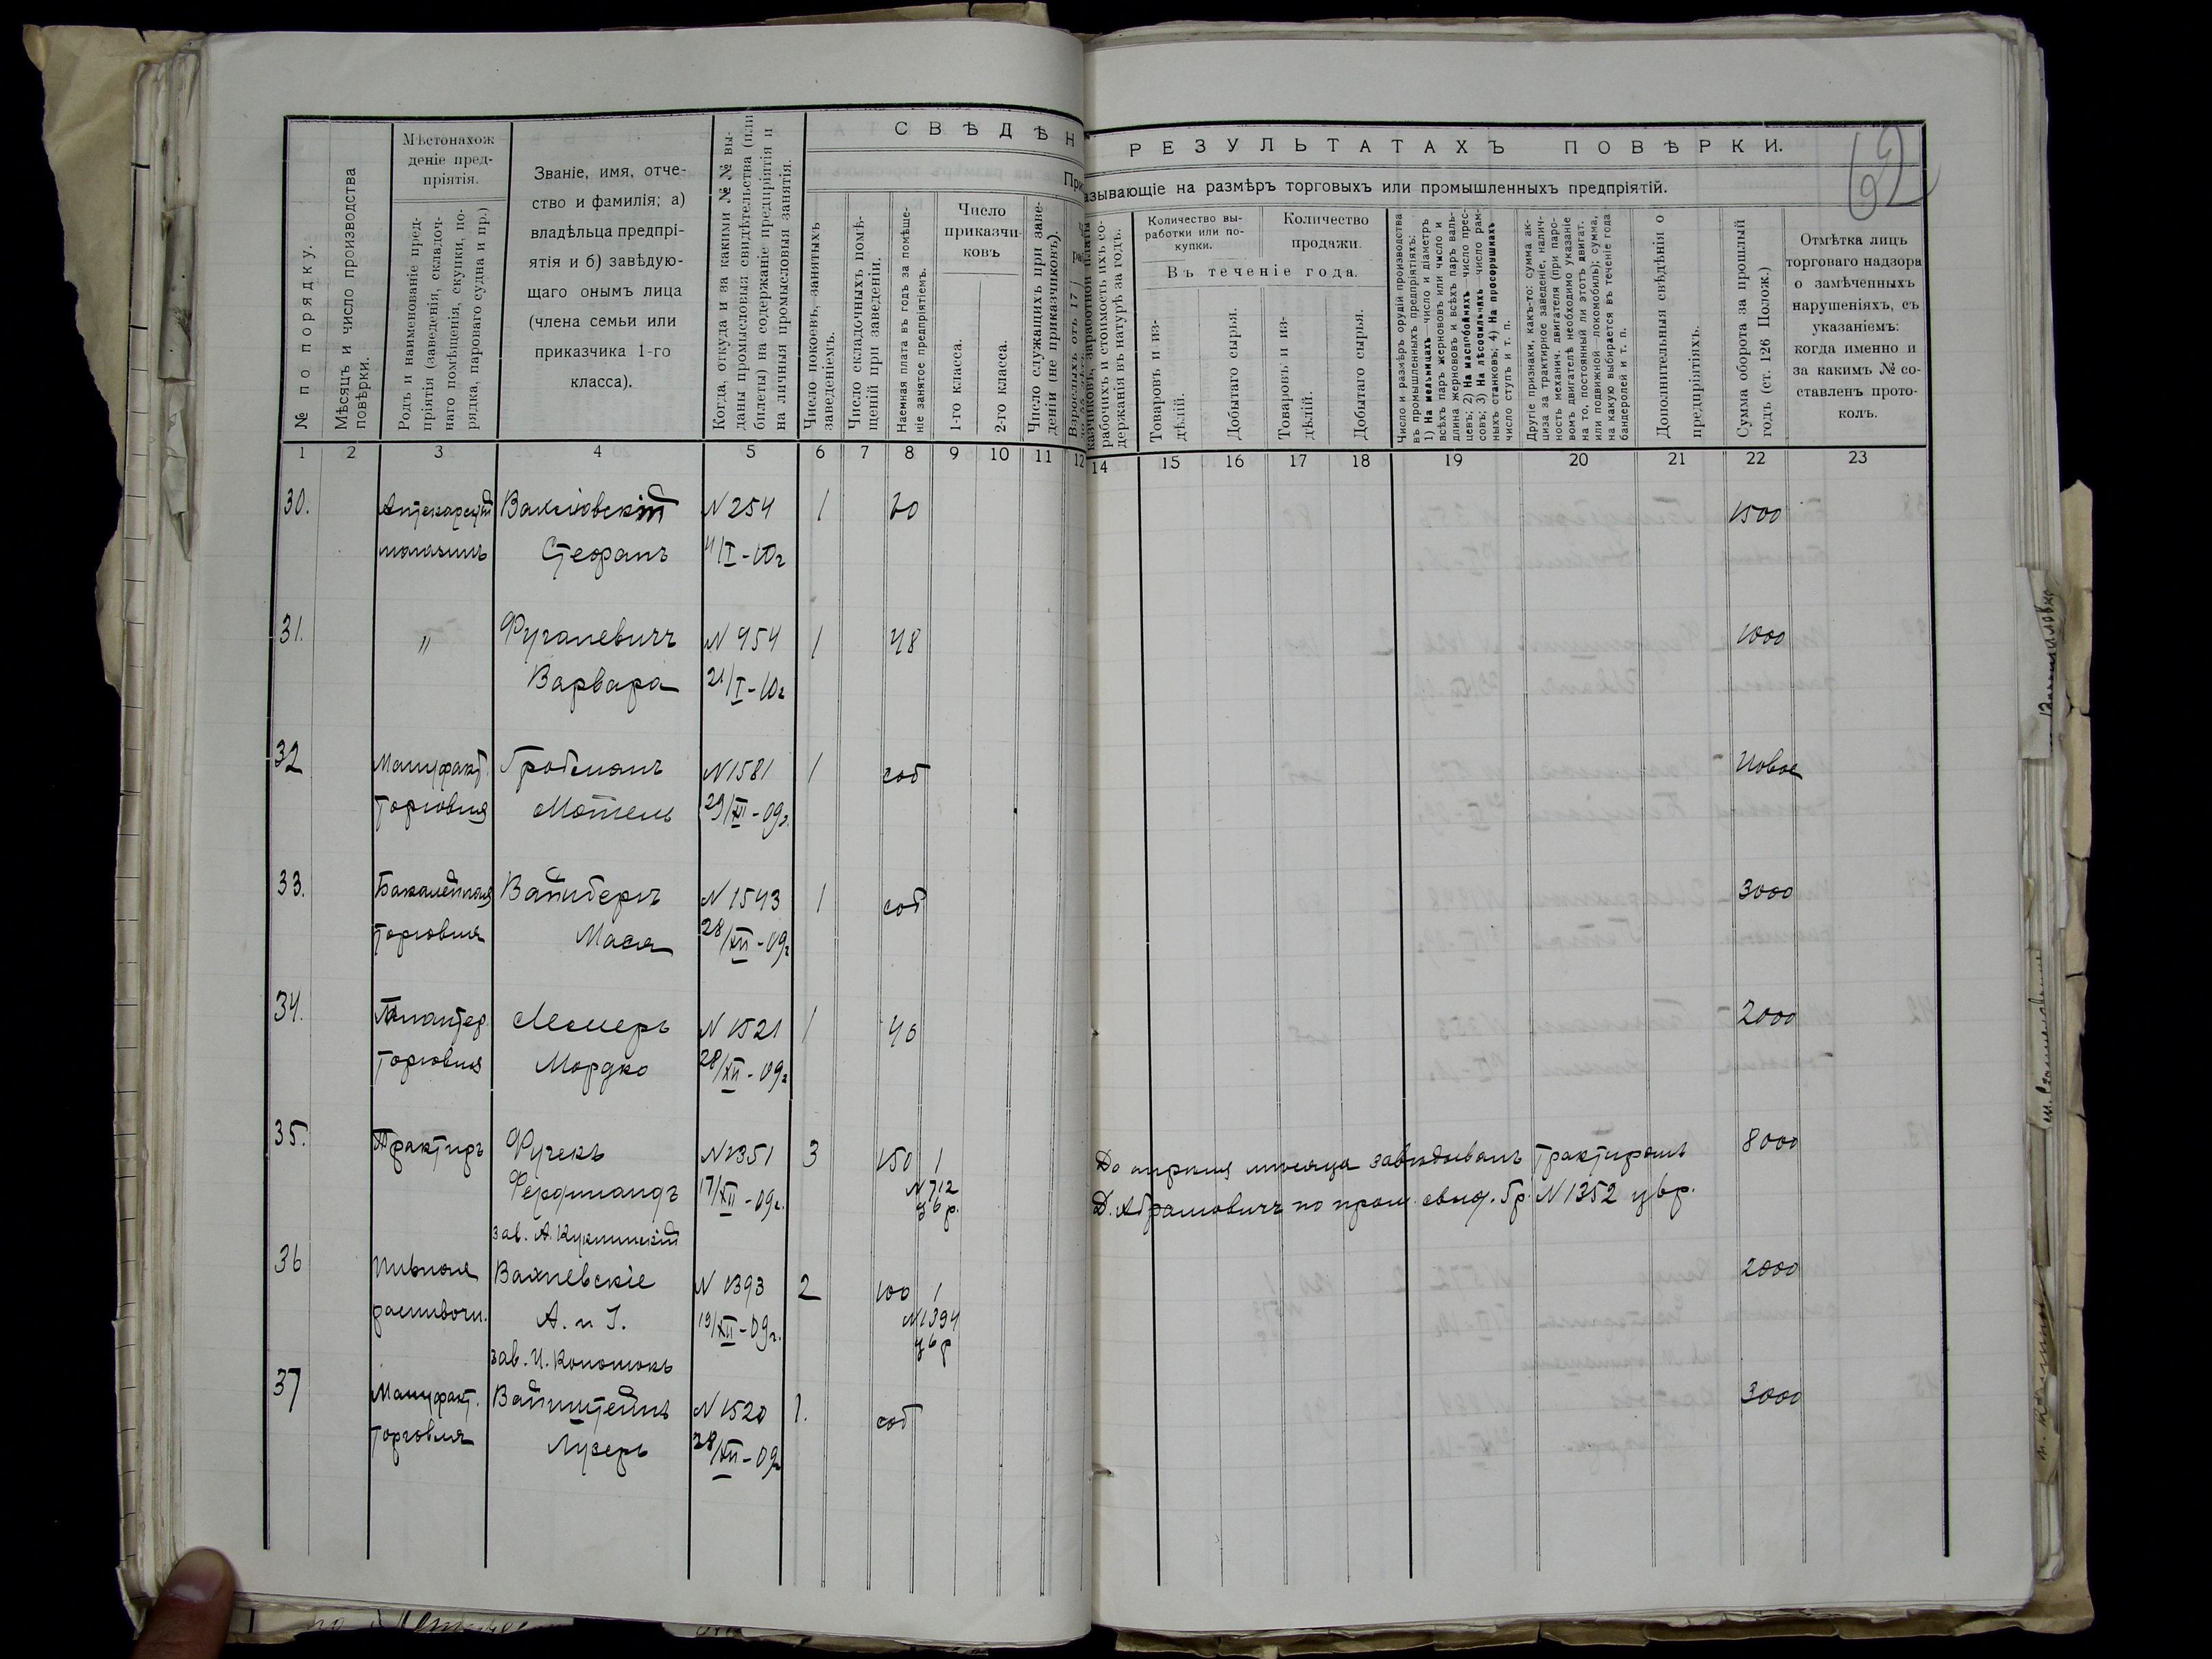 СВѢДѢН
РЕЗУЛЬТАТАХЪ ПОВѢРКИ.
62
азывающіе на размѣръ торговыхъ или промышленныхъ предпріятій.
№ по порядку.
Мѣсяцъ и число производства
повѣрки.
Мѣстонахож
деніе пред-
пріятія.
Родъ и наименованіе пред-
пріятія (заведенія, складоч-
наго помѣщенія, скупки, по-
рядка, парового судна и пр.)
Званіе, имя, отче-
ство и фамилія; а)
владѣльца предпрі-
ятія и б) завѣдую-
щаго онымъ лица
(члена семьи или
приказчика 1-го
класса).
Когда, откуда и за какими №№ вы-
даны промысловыя свидѣтельства (или
билеты) на содержаніе предпріятія и
на личныя промысловыя занятія.
Число покоевъ, занятыхъ
заведеніемъ.
Число складочныхъ помѣ-
щеній при заведеніи.
Наемная плата въ годъ за помѣще-
ніе занятое предпріятіемъ.
Число
приказчи-
ковъ
1-го класса.
2-го класса.
Число служащихъ при заве-
деніи (не приказчиковъ).
рабочихъ и стоимость ихъ со-
держанія въ натурѣ за годъ.
Количество вы-
работки или по-
купки.
Количество
продажи.
Въ теченіе года.
Товаровъ и из-
дѣлій.
Добытаго сырья.
Товаровъ и из-
дѣлій.
Добытаго сырья.
Число и размѣръ орудій производства
въ промышленныхъ предпріятіяхъ:
1) На мельницахъ число и діаметръ
всѣхъ паръ жернововъ или число и
длина жернововъ и всѣхъ паръ валь-
цевъ; 2) На маслобойняхъ число прес-
совъ; 3) На лѣсопильняхъ число рам-
ныхъ станковъ; 4) На просорушкахъ
число ступъ и т. п.
Другіе признаки, какъ-то: сумма ак-
циза за трактирное заведеніе, налич-
ность механич. двигателя (при паро-
вомъ двигателѣ необходимо указаніе
на то, постоянный ли этотъ двигат.
или подвижной—локомобиль); сумма,
на какую выбирается въ теченіе года
бандеролей и т. п.
Дополнительныя свѣдѣнія о
предпріятіяхъ.
Сумма оборота за прошлый
годъ (ст. 126 Полож.)
Отмѣтка лицъ
торговаго надзора
о замѣченныхъ
нарушеніяхъ, съ
указаніемъ:
когда именно и
за какимъ № со-
ставленъ прото-
колъ.
1 2 3 4 5 6 7 8 9 10 11 12 14 15 16 17 18 19 20 21 22 23
30. Аптекарскій N 254 1 1500
магазинъ Стефанъ
31. " N 954 1 48 1000
Варвара 21/I-10г
32 Мануфакт. Гройсманъ N 1581 1 соб Новое
торговля Мотель 29/XII-09г.
33. Бакалейная Вайнберъ N 1543 1 соб 3000
торговля Мася 28/XII-09г
34. Галантер. N 1521 1 40 2000
торговля Мордко 28/XII-09г
35. Трактиръ Фучекъ N 1351 3 150 1 8000
Фердинандъ 17/XII-09г. N 712
6 р.
До апрѣля мѣсяца завѣдывалъ трактиромъ
Д. Абрамовичъ по пром. свид. N 1352 6р.
36 Пивная N 1393 2 100 1 2000
распивочн. А. и І. 19/XII-09г. N 1394
6 р
37 Мануфакт. Вайнштейнъ N 1520 1. соб 3000
торговля Лузеръ 28/XII-09г